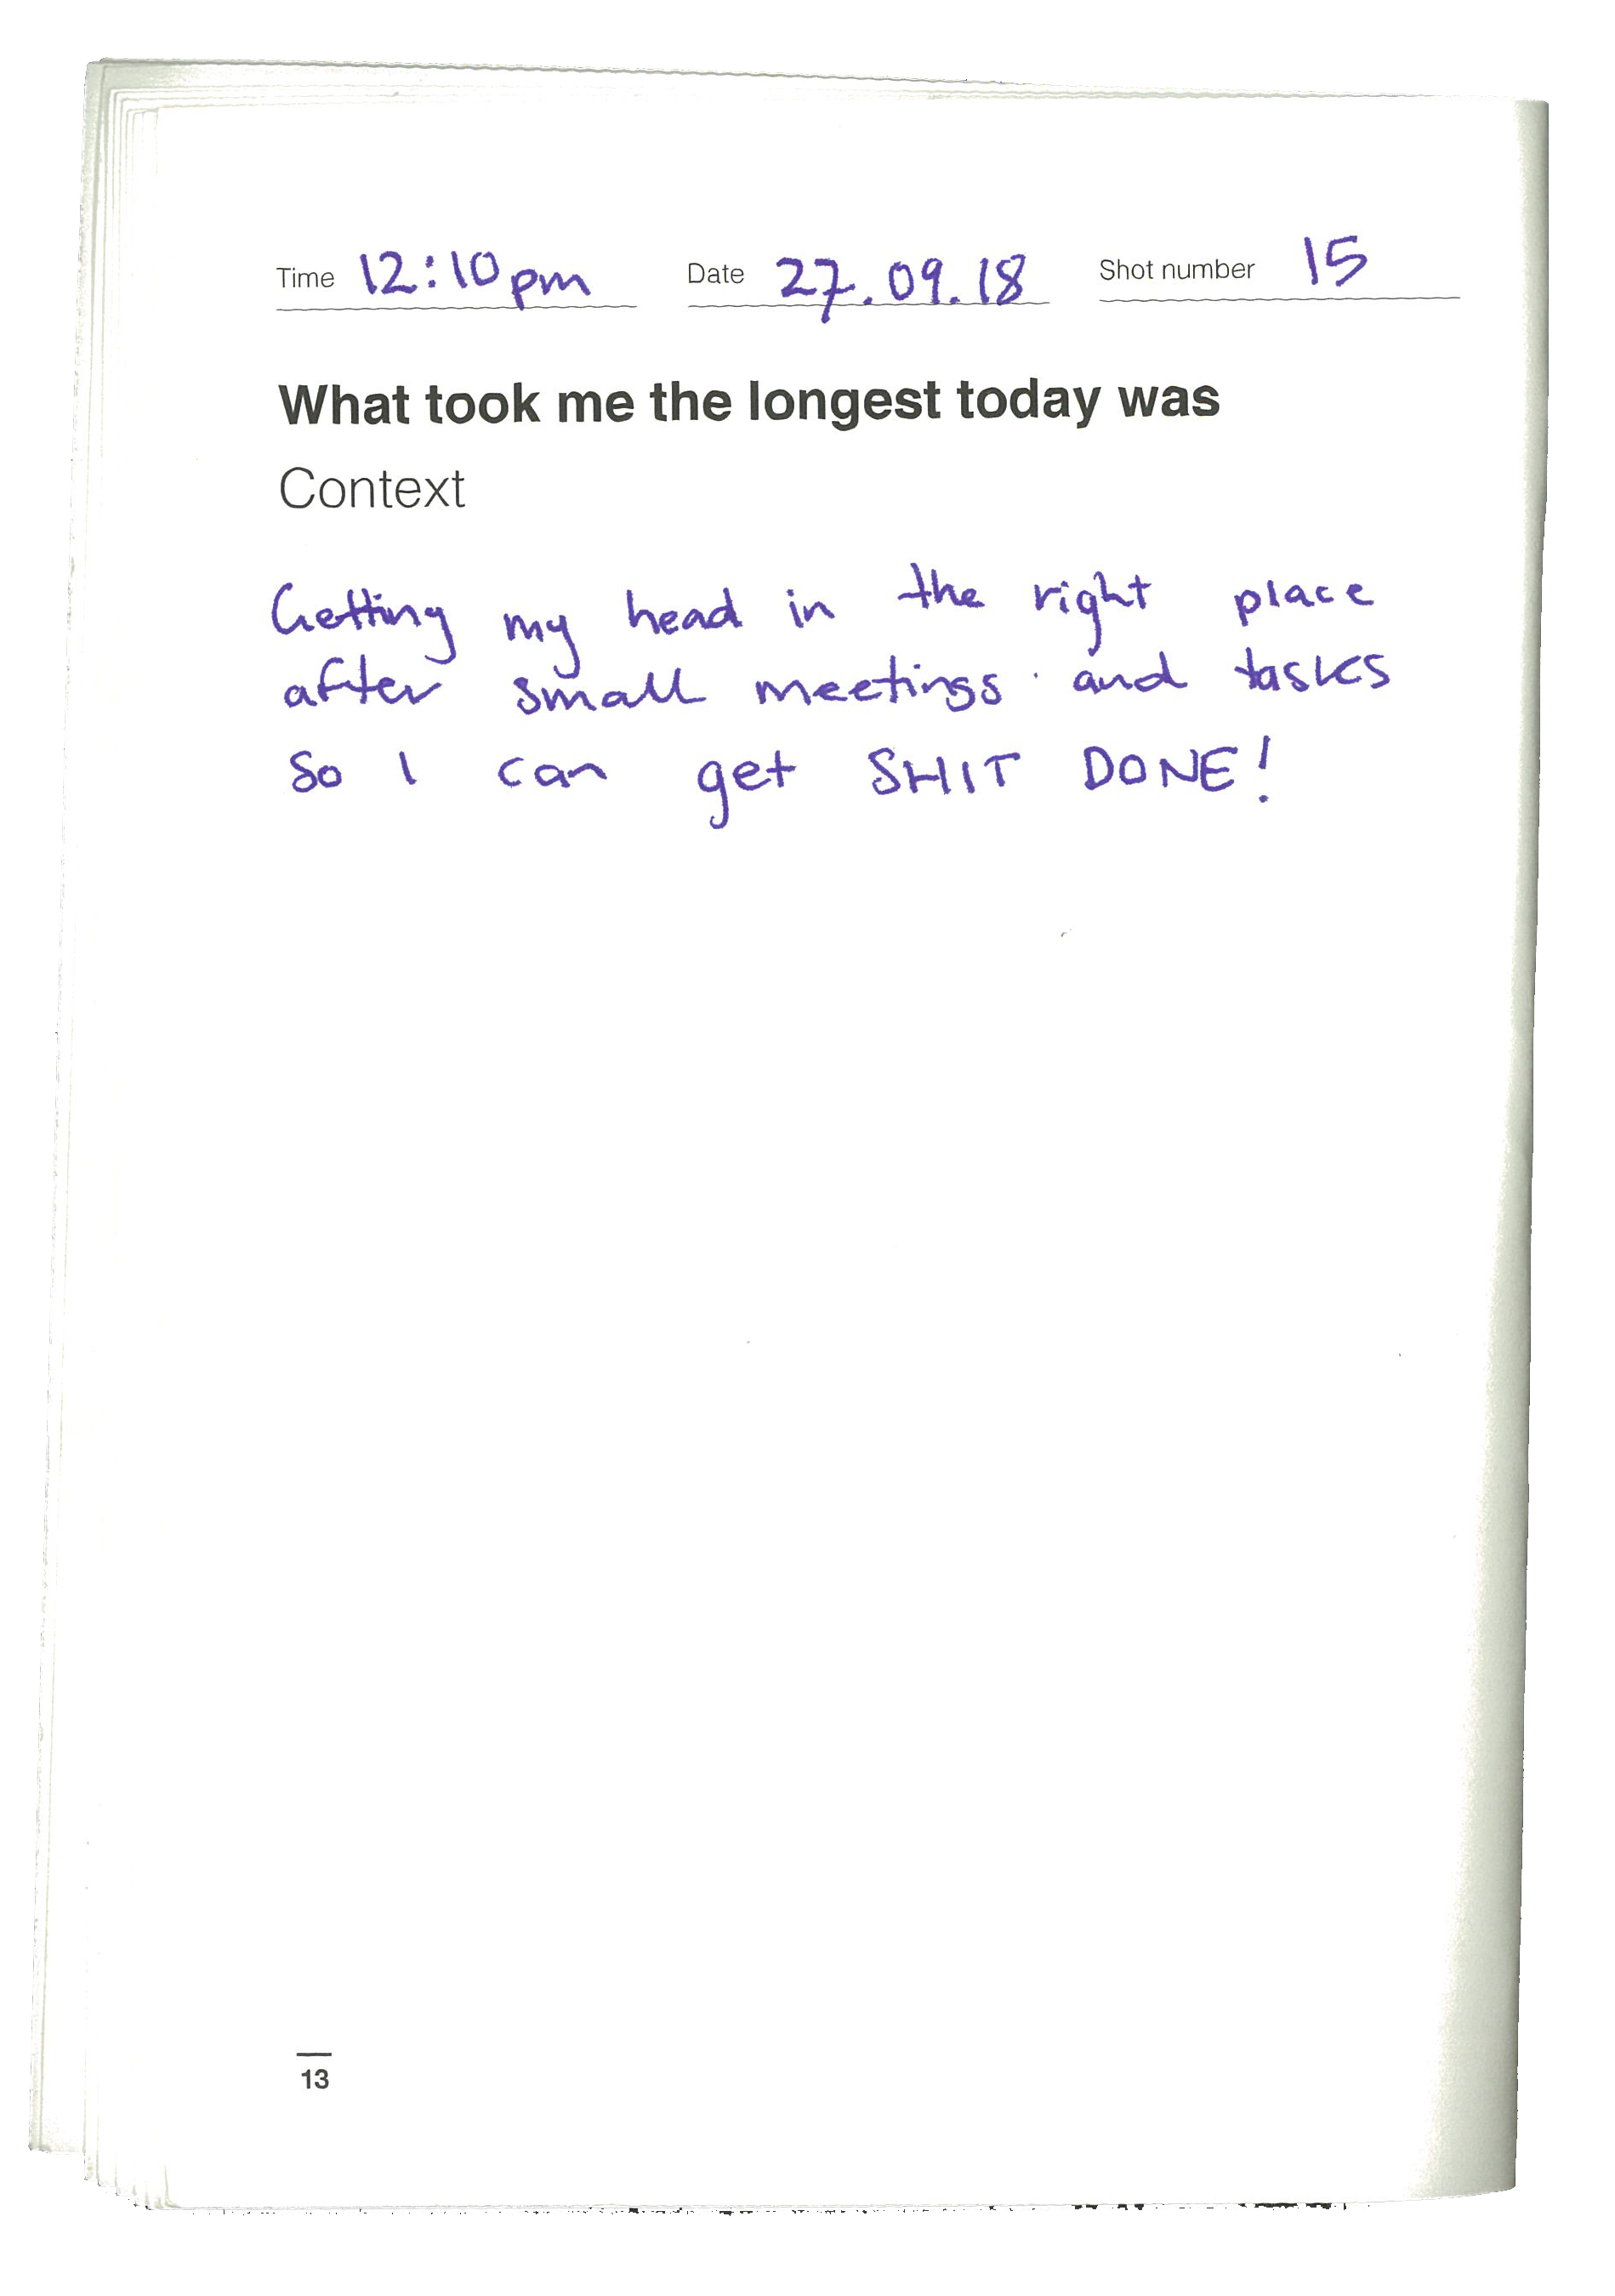 Time 12:10pm Date 27.09.18 Shot number 15
What took me the longest today was
Context
Getting my head in the right place
after small meetings and tasks
so I can get SHIT DONE!
13